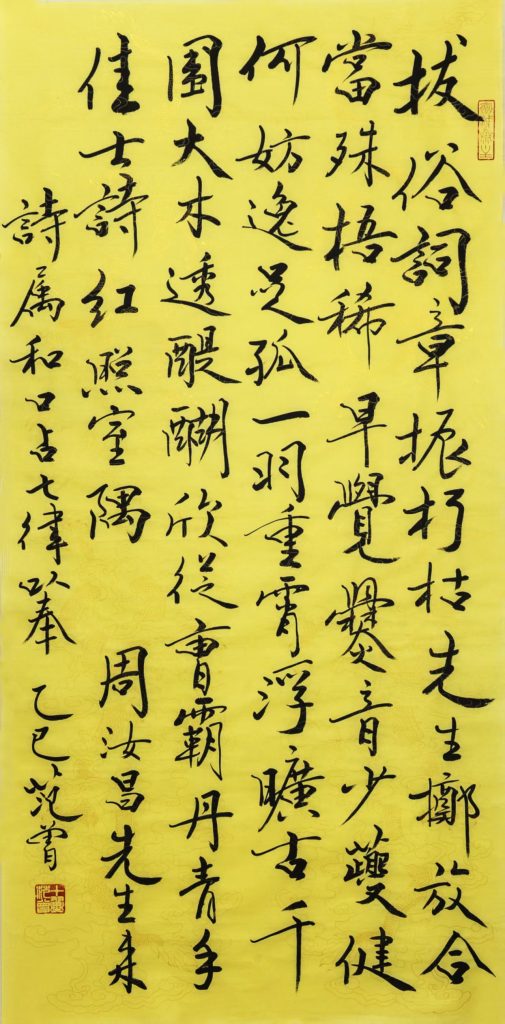 拔俗詞章振朽枯先生擲放合
當殊梧稀早覺爨音少夔健
何妨逸足孤一羽重霄浮曠古千
圍大木透醍醐欣從曹霸丹青手
佳士詩紅照室隅 周汝昌先生来
詩属和口占七律以奉 乙巳 范曾